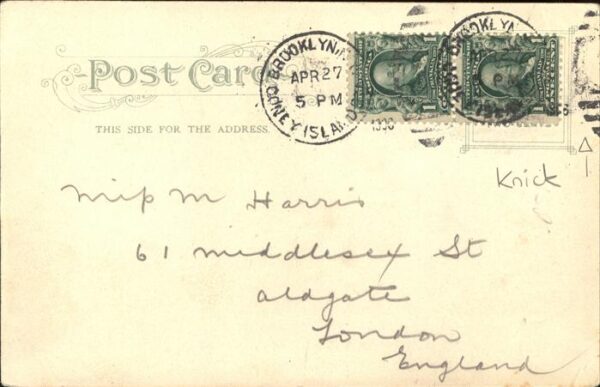 Post Card
THIS SIDE FOR THE ADDRESS.
BROOKLYN, N.Y.
APR 27
5 PM
1906
CONEY ISLAND
Knick
Miss M Harris
61 Middlesex St
Aldgate
London
England